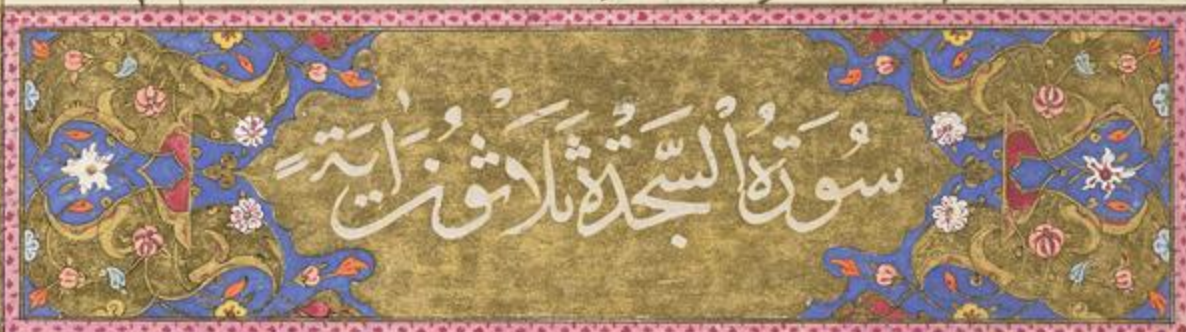 سُورَةُ السَّجْدَةِ ثَلَاثُونَ اٰيَةً